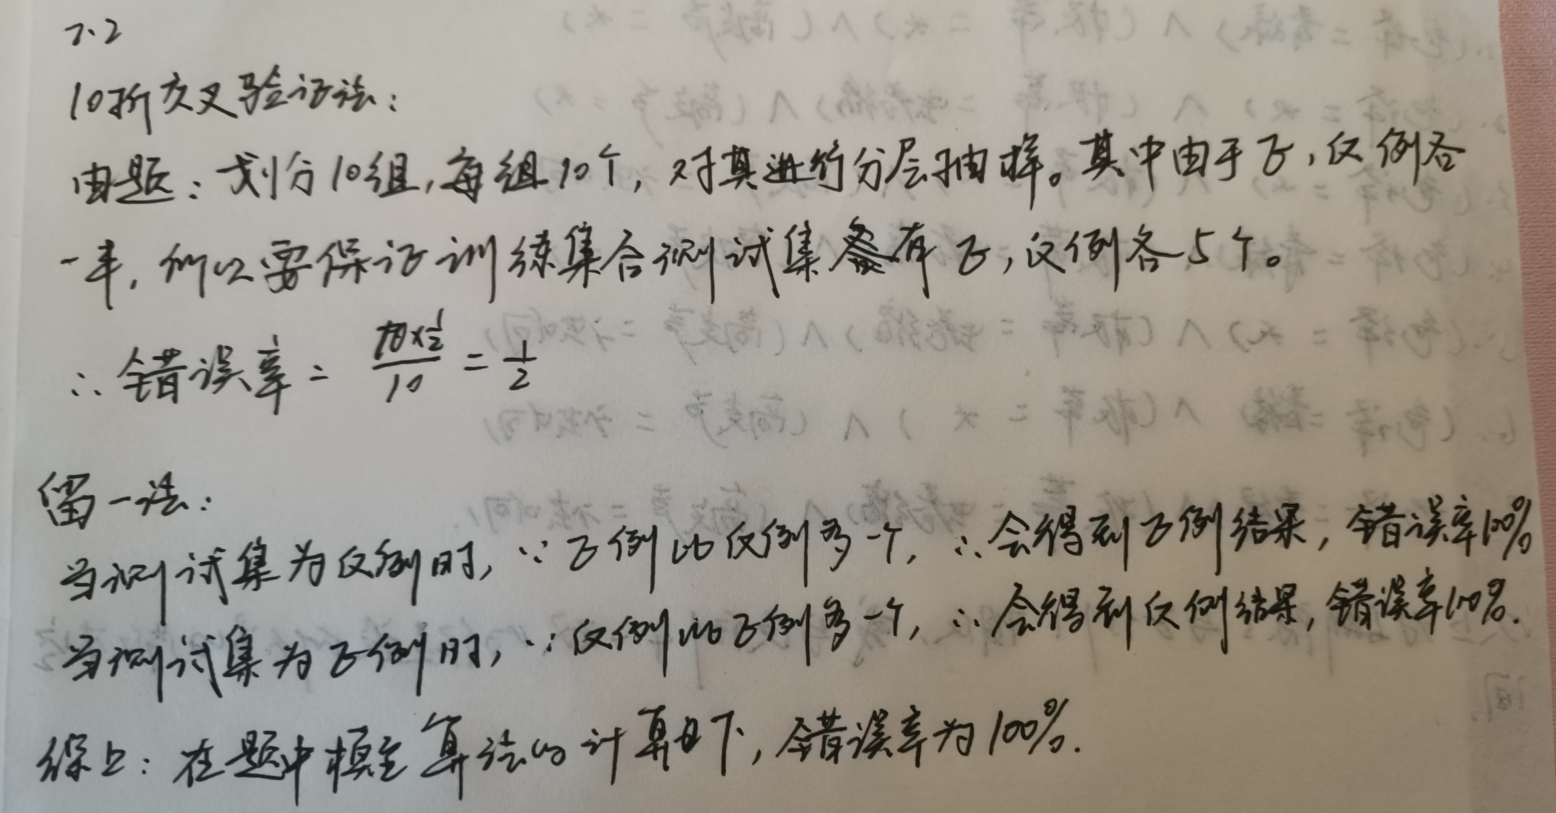 7.2
10折交叉验证法：
由题：划分10组，每组10个，对其进行分层抽样。其中由于正，反例各
一半，所以要保证训练集合测试集有正，反例各5个。
∴错误率 = (10×1/2)/10 = 1/2
留一法：
当测试集为反例时，∵正例比反例多一个，∴会得到正例结果，错误率100%
当测试集为正例时，∵反例比正例多一个，∴会得到反例结果，错误率100%.
综上：在题中算法的计算下，错误率为100%.